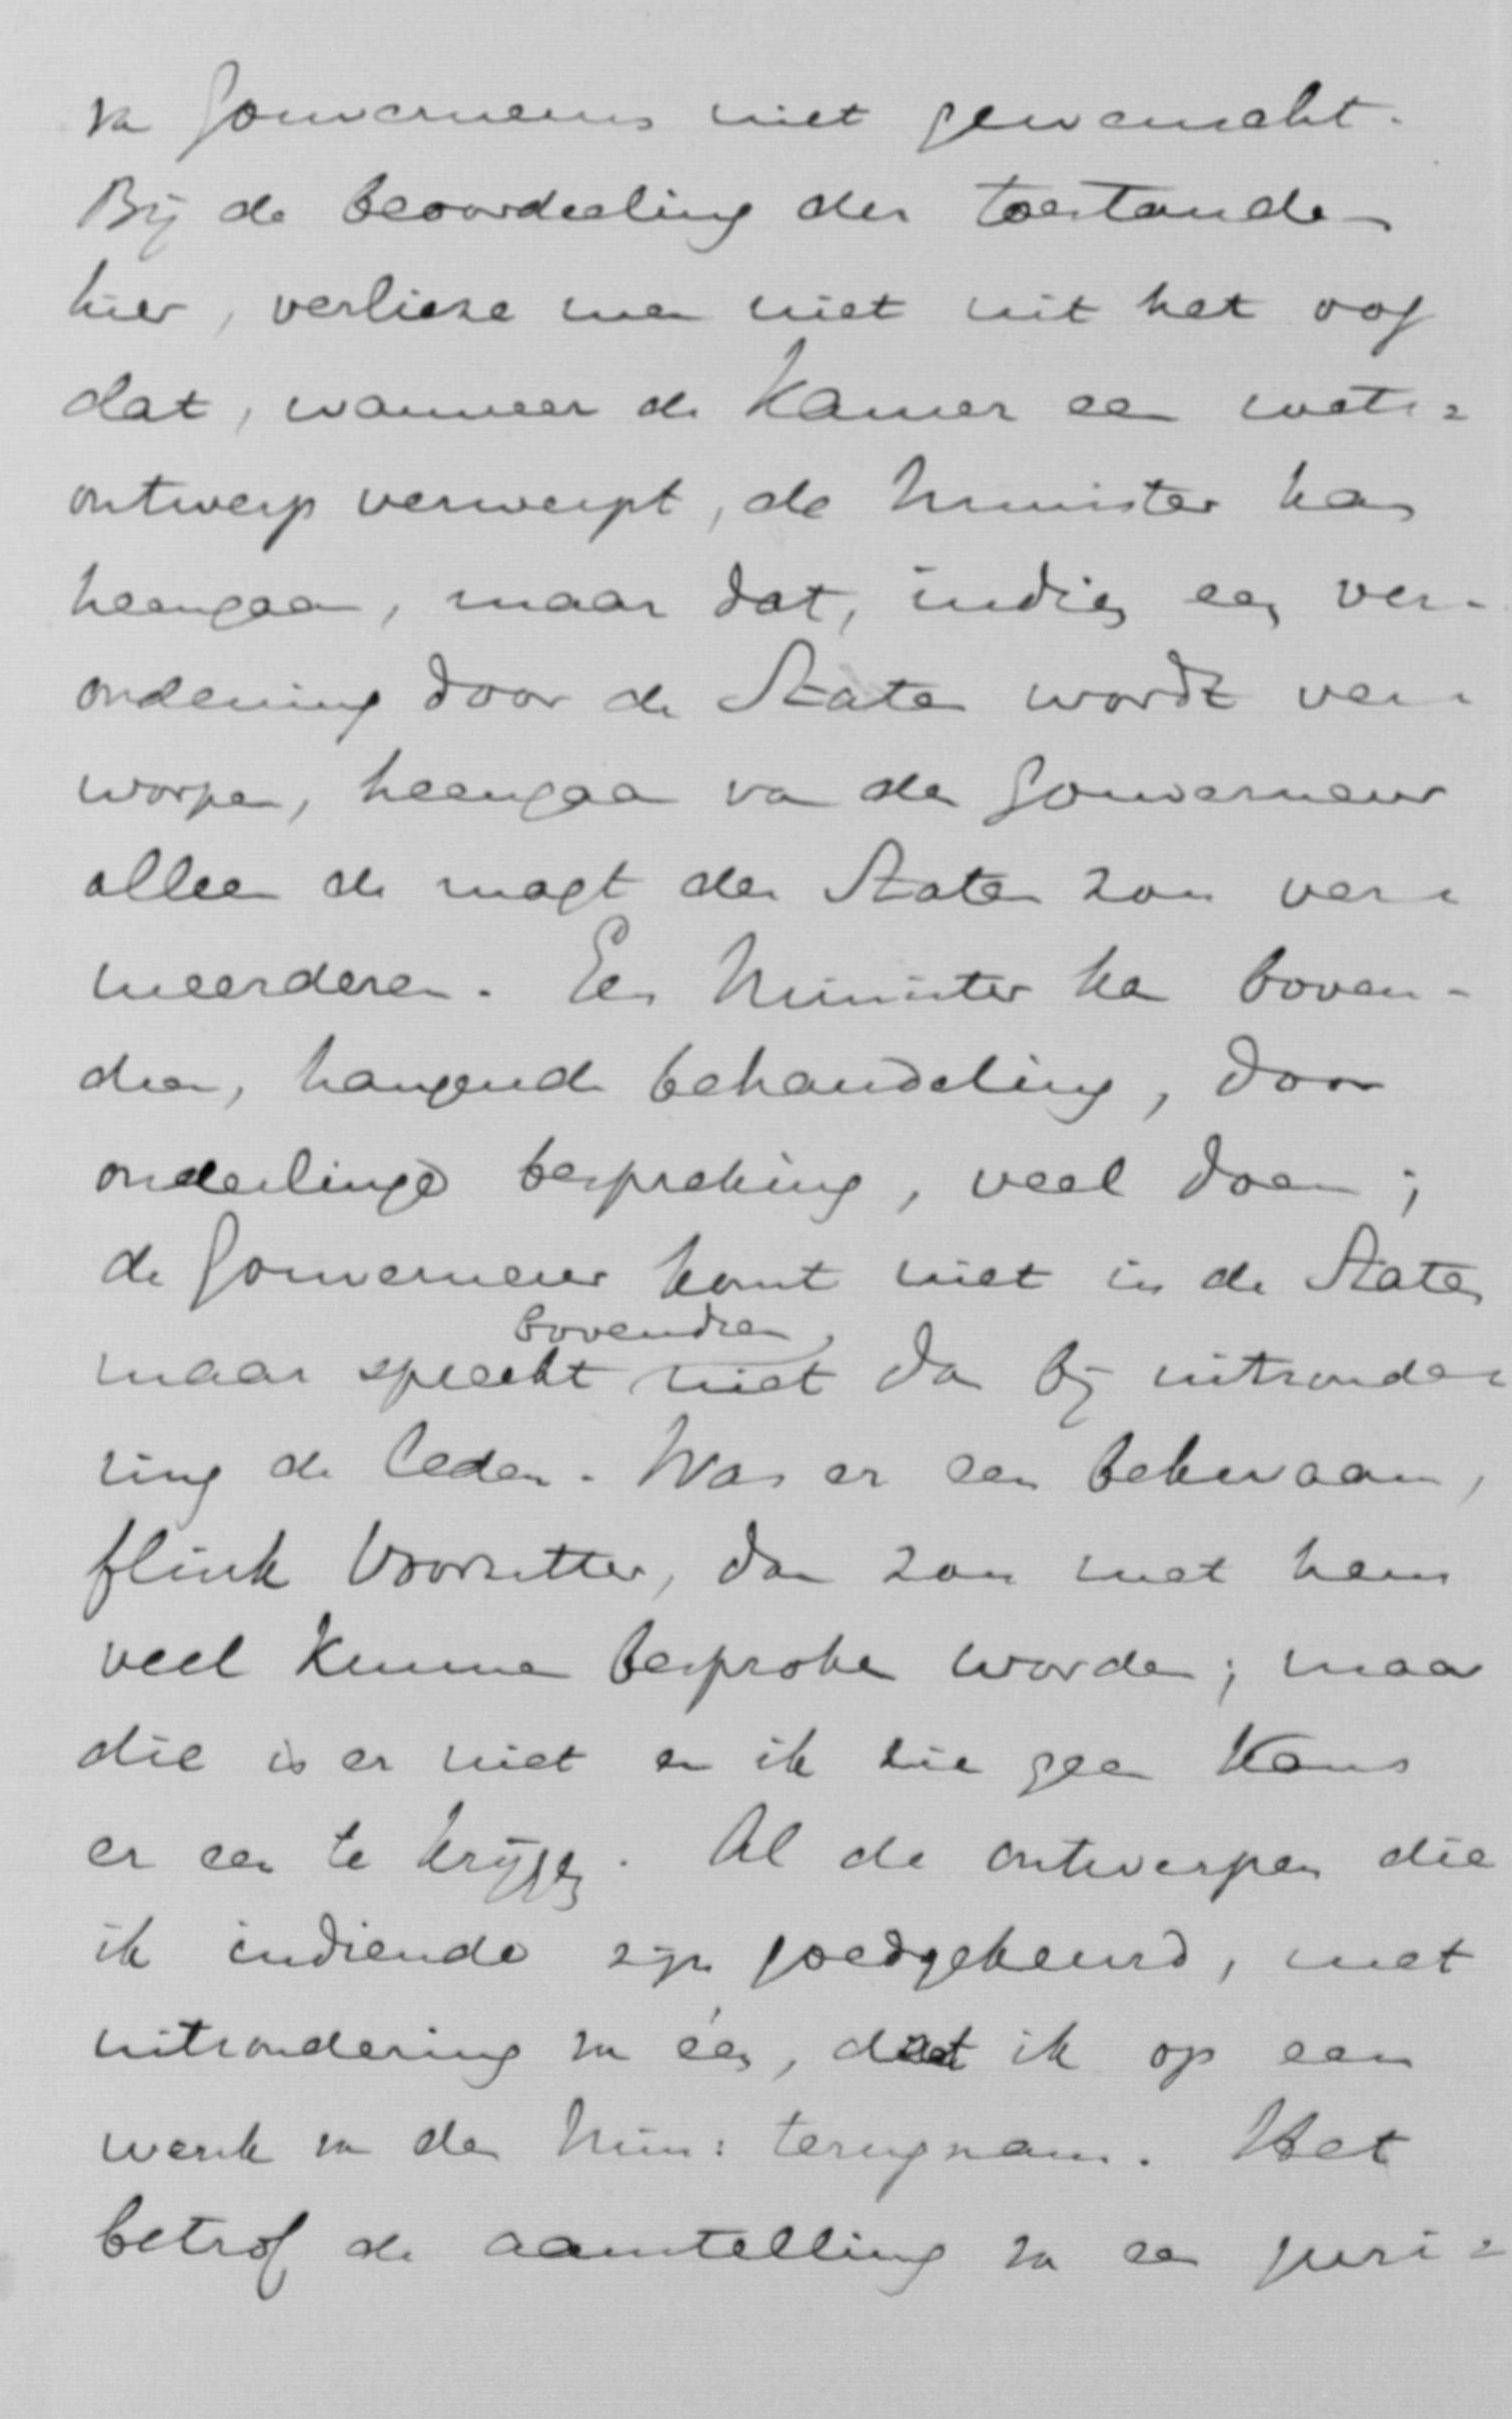 van Gouverneurs niet gewenscht.
Bij de beoordeeling der toestanden
hier, verlieze men niet uit het oog
dat, wanneer de Kamer een wets=
ontwerp verwerpt, de Minister kan
heengaan, maar dat, indien een ver-
ordening door de Staten wordt ver-
worpen, heengaan van den Gouverneur
alleen de magt der Staten zou ver-
meerderen. Een Minister kan boven-
dien, hangende behandeling, door
onderlinge bespreking, veel doen;
de Gouverneur komt niet in de Staten
bovendien,
maar spreekt niet dan bij uitzonde-
ring de leden. Was er een bekwaam,
flink Voorzitter, dan zou met hem
veel kunnen besproken worden; maar
die is er niet en ik zie geen kans
er een te krijgen. Al de ontwerpen die
ik indiende zijn goedgekeurd, met
uitzondering van één, dat ik op een
wenk van den Min: terugnam. Het
betrof de aanstelling van een juri=